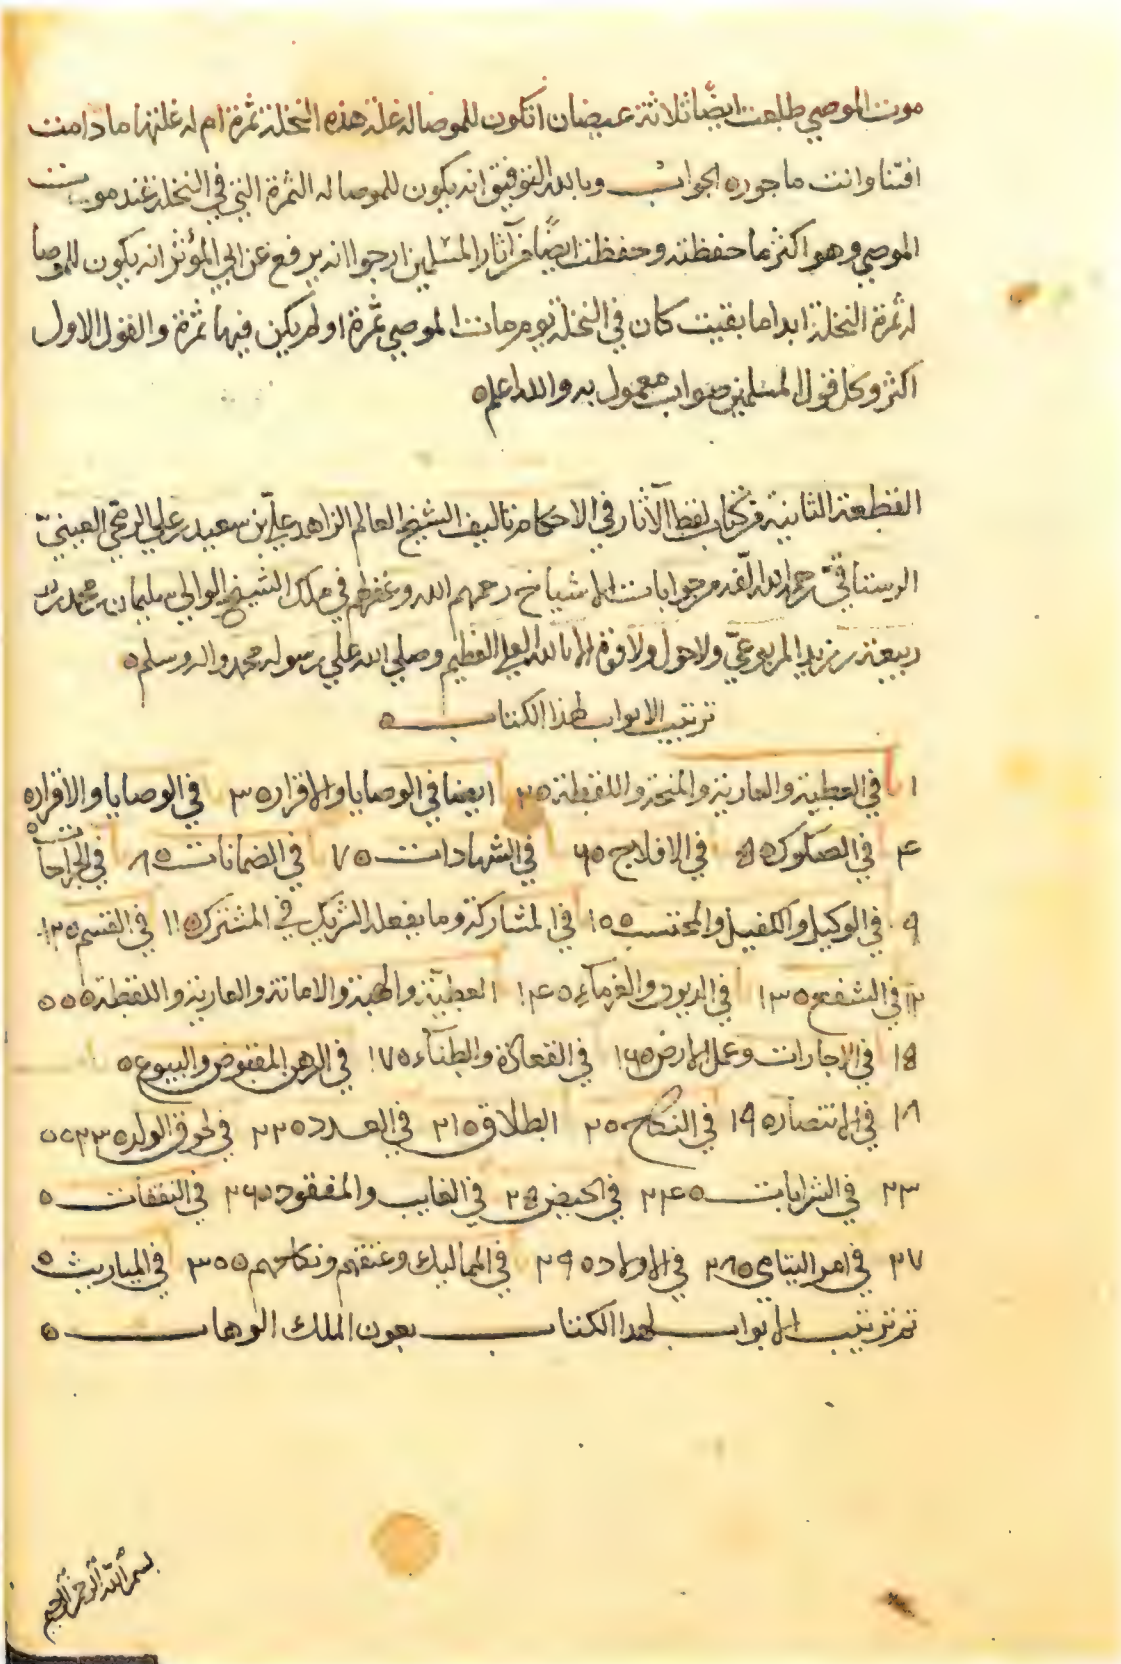 موت الموصي طلعت ايضا ثلاثة عيضان اتكون للموصا له غلة هذه النخلة ثمرة ام له غلتها ما دامت
افتنا وانت ماجور ه الجواب وبالله التوفيق انه يكون للموصا له الثمرة التي في النخلة عند موت
الموصي وهو اكثر ما حفظته وحفظت ايضًا من آثار المسلمين ارجوا انه يرفع عن ابي المؤثر انه يكون للموصا
له ثمرة النخلة ابدا ما بقيت كان في النخلة يوم مات الموصي ثمرة او لم يكن فيها ثمرة والقول الاول
اكثر وكل قول المسلمين صواب معمول به والله اعلم ه
القطعة الثانية من كتاب لقط الآثار في الاحكام تاليف الشيخ العالم الزاهد علي بن سعيد بن علي الرمحي العيني
الرستاقي رحمه الله الفه من جوابات الاشياخ رحمهم الله وغفر لهم في ملك الشيخ الوالي سليمان بن محمد بن
ربيعة بن المربوعي ولا حول ولا قوة الا بالله العلي العظيم وصلى الله على رسوله محمد واله وسلم ه
ترتيب الابواب لهذا الكتاب ه
١ في العطية والعارية والمنحة واللقطة ه ٢ ايضا في الوصايا والاقرار ه ٣ في الوصايا والاقرار ه
۴ في الصكوك ه ٥ في الافلاج ه ۶ في الشهادات ه ٧ في الضمانات ه ٨ في الجراحات ه
٩ في الوكيل والكفيل والمحتسب ه ١٠ في المشاركة وما يفعله الشريك في المشترك ه ١١ في القسم ه
١٢ في الشفع ه ١٣ في الديون والغرماء ه ١۴ العطية والهبة والامانة والعارية واللقطة ه ه ه
١٥ في الاجارات وعمل الارض ه ١۶ في القعادة والطناء ه ١٧ في الرهن المقبوض والبيوع ه
١٨ في الانتصار ه ١٩ في النكاح ه ٢٠ الطلاق ه ٢١ في العدد ه ٢٢ في لحوق الولد ه
٢٣ في الشرايات ه ٢۴ في الحيض ٢٥ في الغايب والمفقود ه ٢۶ في النفقات ه
٢٧ في امر اليتامى ه ٢٨ في الاولاد ه ٢٩ في المماليك وعتقهم ونكاحهم ه ٣٠ في المياريث ه
تم ترتيب الابواب لهذا الكتاب بعون الملك الوهاب ه
بسم الله الرحمن الرحيم